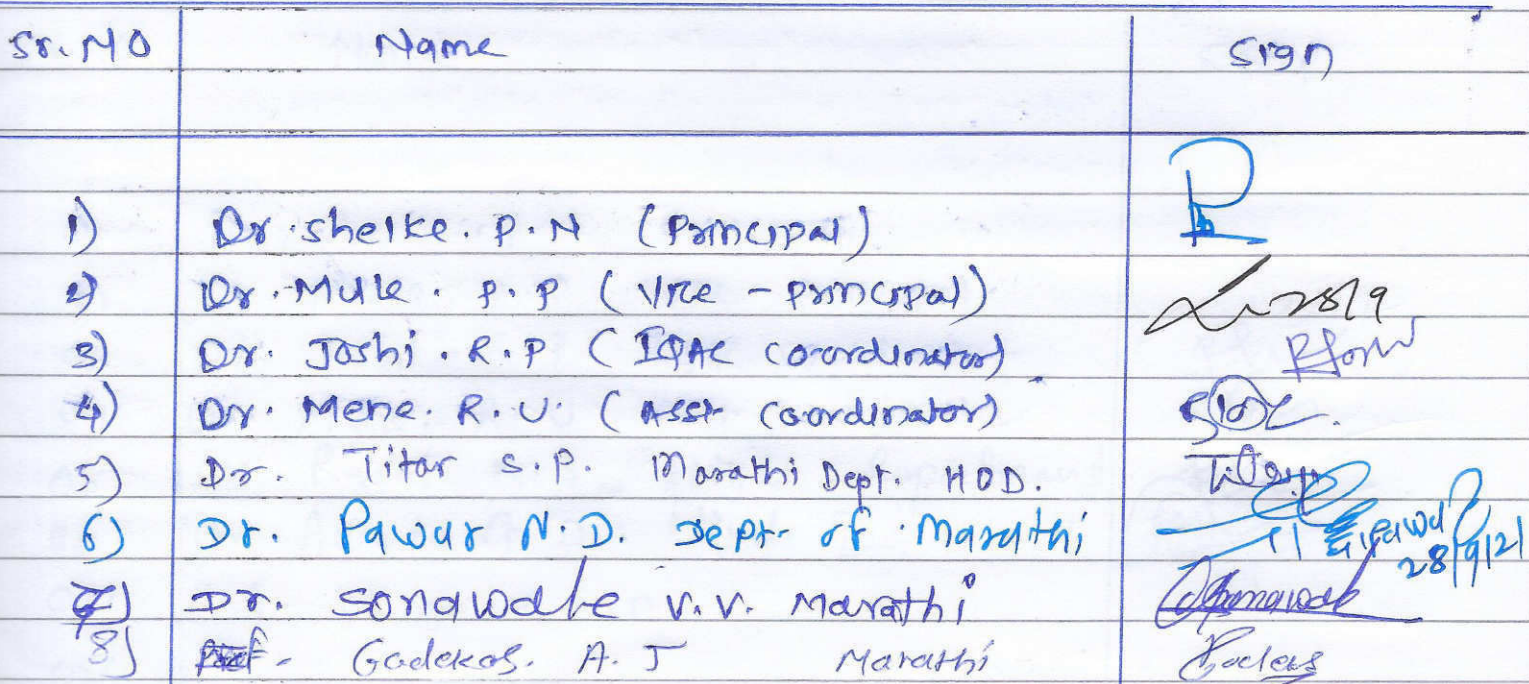 Sr. No Name Sign
1) Dr. Shelke. P. N (Principal)
2) Dr. Mule. P. P (Vice - Principal) 28/9
3) Dr. Joshi. R. P (IQAC Coordinator)
4) Dr. Mene. R. U. (Asst Coordinator)
5) Dr. Titar S. P. Marathi Dept. HOD.
6) Dr. Pawar N D. Dept. of Marathi 28/9/21
7) Dr. Sonawale V. V. Marathi
8) Prof. Gadekar. A. J Marathi